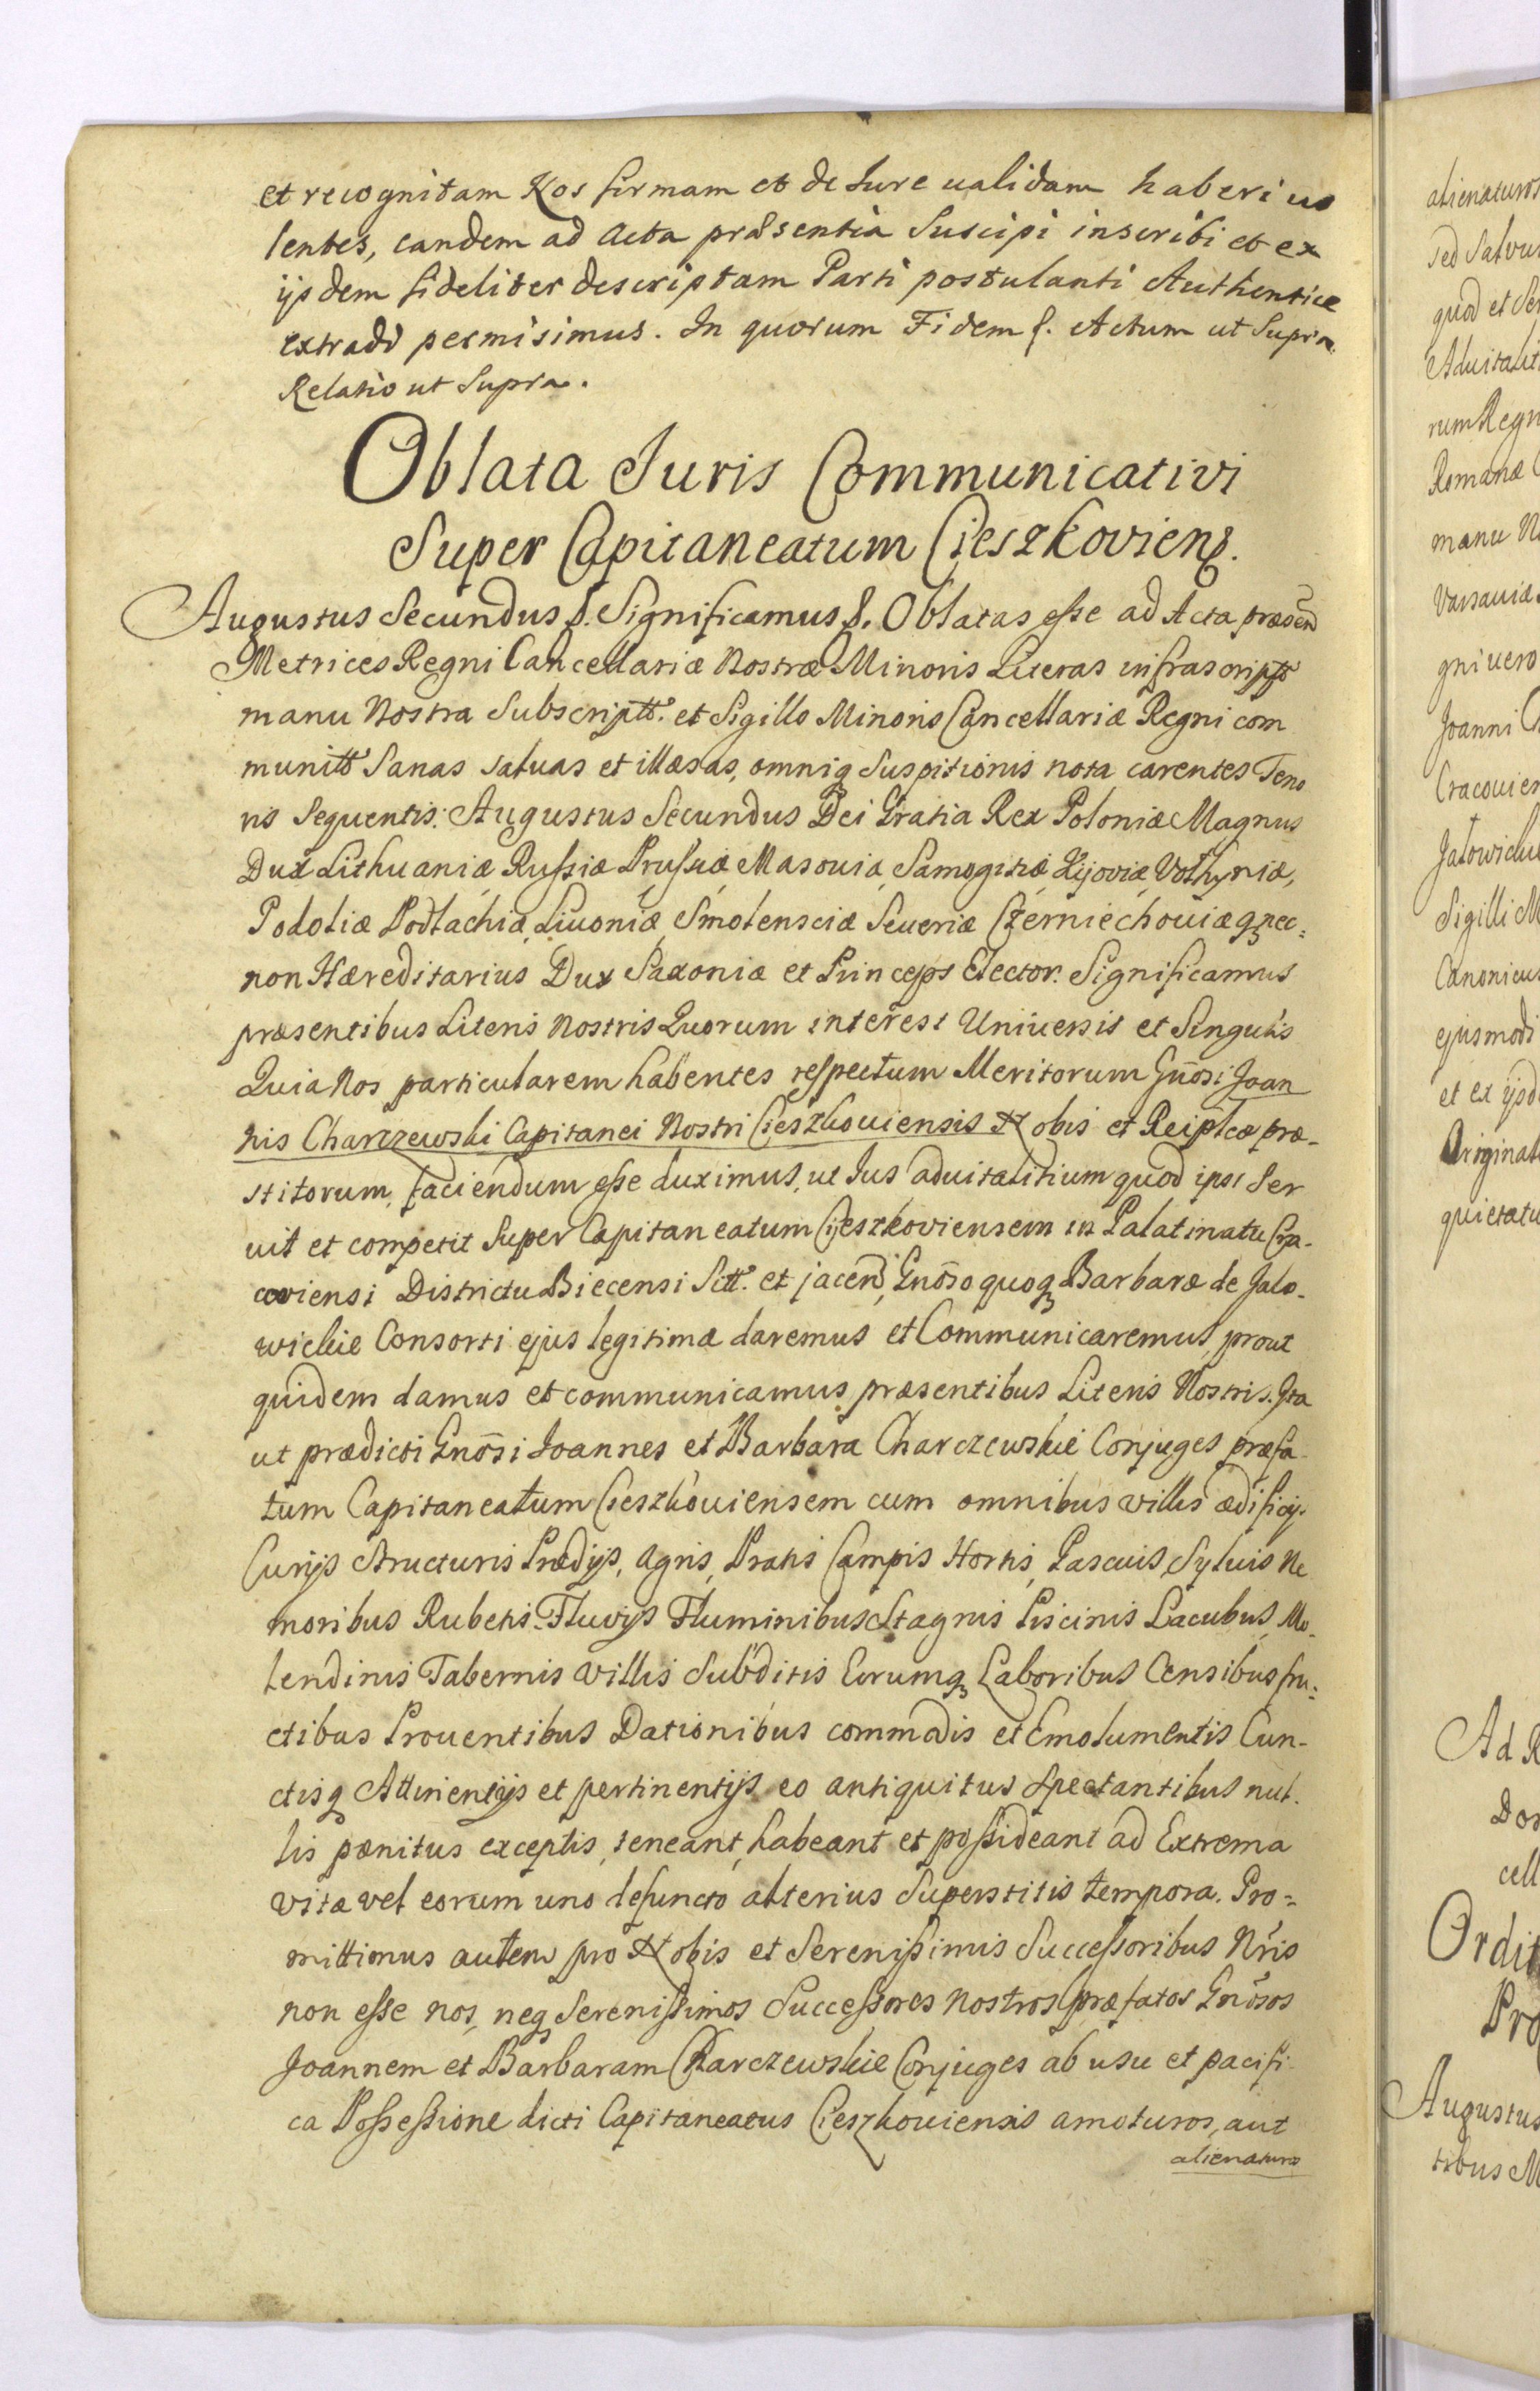 et recognitam Nos firmam et de Iure ualidam haberi uo
lentes, eandem ad Acta præsentia Suscipi inscribi et ex
ijsdem fideliter descriptam Parti postulanti Authentice
extradi permisimus. In quorum Fidem &. Actum ut Supra.
Relatio ut Supra.
Oblata Iuris Communicativi
Super Capitaneatum Cieszkoviens.
Augustus Secundus &. Significamus &. Oblatas esse ad Acta præsen
Metrices Regni Cancellariæ Nostræ Minoris Literas infrascriptt
manu Nostra Subscriptt. et Sigillo Minoris Cancellariæ Regni com
munitt Sanas saluas et illæsas, omniq Suspitionis nota carentes Teno
ris Sequentis: Augustus Secundus Dei Gratia Rex Poloniæ Magnus
Dux Lithuaniæ Russiæ Prussiæ Masouiæ, Samogitiæ Kijoviæ, Volhyniæ,
Podoliæ Podlachiæ, Liuoniæ, Smolensciæ Seueriæ Czerniechouiæq nec=
non Hæreditarius Dux Saxoniæ et Princeps Elector. Significamus
præsentibus Literis Nostris Quorum interest Uniuersis et Singulis
Quia Nos particularem habentes respectum Meritorum Gnosi Joan
nis Charczewski Capitanei Nostri Cieszkouiensis Nobis et Reiplcæ præ-
stitorum, faciendum esse duximus, ut Ius aduitalitium quod ipsi Ser
uit et competit Super Capitaneatum Cieszkoviensem in Palatinatu Cra-
coviensi Districtu Biecensi Sitt. et jacen, Gnoso quoq Barbaræ de Jalo-
wickie Consorti ejus legitimæ daremus et Communicaremus, prout
quidem damus et communicamus præsentibus Literis Nostris. Ita
ut prædicti Gnosi Joannes et Barbara Charczewskie Conjuges præfa-
tum Capitaneatum Cieszkouiensem cum omnibus villis ædificijs
Curijs Structuris Prædijs, Agris, Pratis Campis Hortis, Pascuis, Syluis Ne
moribus Rubetis Fluvijs Fluminibus Stagnis Piscinis Lacubus, Mo-
lendinis Tabernis Villis Subditis Eorumq Laboribus Censibus fru=
ctibus Prouentibus Dationibus commodis et Emolumentis Cun-
ctisq Attinentijs et pertinentijs eo antiquitus Spectantibus nul.
lis pænitus exceptis, teneant, habeant et possideant ad Extrema
vitæ vel eorum uno defuncto alterius Superstitis tempora. Pro=
mittimus autem pro Nobis et Serenissimis Successoribus Nris
non esse nos, neq Serenissimos Successores nostros præfatos Gnosos
Joannem et Barbaram Charczewskie Conjuges ab usu et pacifi-
ca Possessione dicti Capitaneatus Cieszkouiensis amoturos, aut
alienaturos
alienaturos
sed Saluu
quod et Ser
Aduitalit
rum Regn
Romanæ
manu N
Varsauiæ
gni uero
Joanni
Cracouien
Jalowick
Sigilli M
Canonicus
ejusmodi
et ex ijsd
Original
quietatu
Ad R
Do
cell
Ordi
Pro
Augustus
tibus M